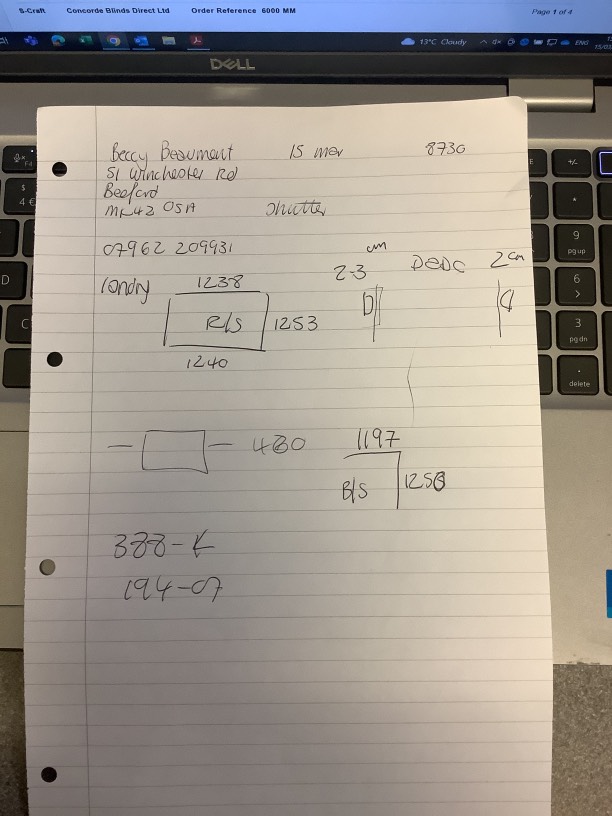 S-Craft Concorde Blinds Direct Ltd Order Reference 6000 MM Page 1 of 4
13°C Cloudy ENG
15/03
DELL
Beccy Beaumont 15 mar 8730
51 Winchester Rd
Beeford
MK42 0SA Shutter
07962 209931
2-3 cm DEDC 2 cm
1238
R/S 1253
1240
480 1197
B/S 1253
388-K
194-07
F4
$
4 €
D
C
E
+/-
*
9
pg up
6
>
3
pg dn
.
delete